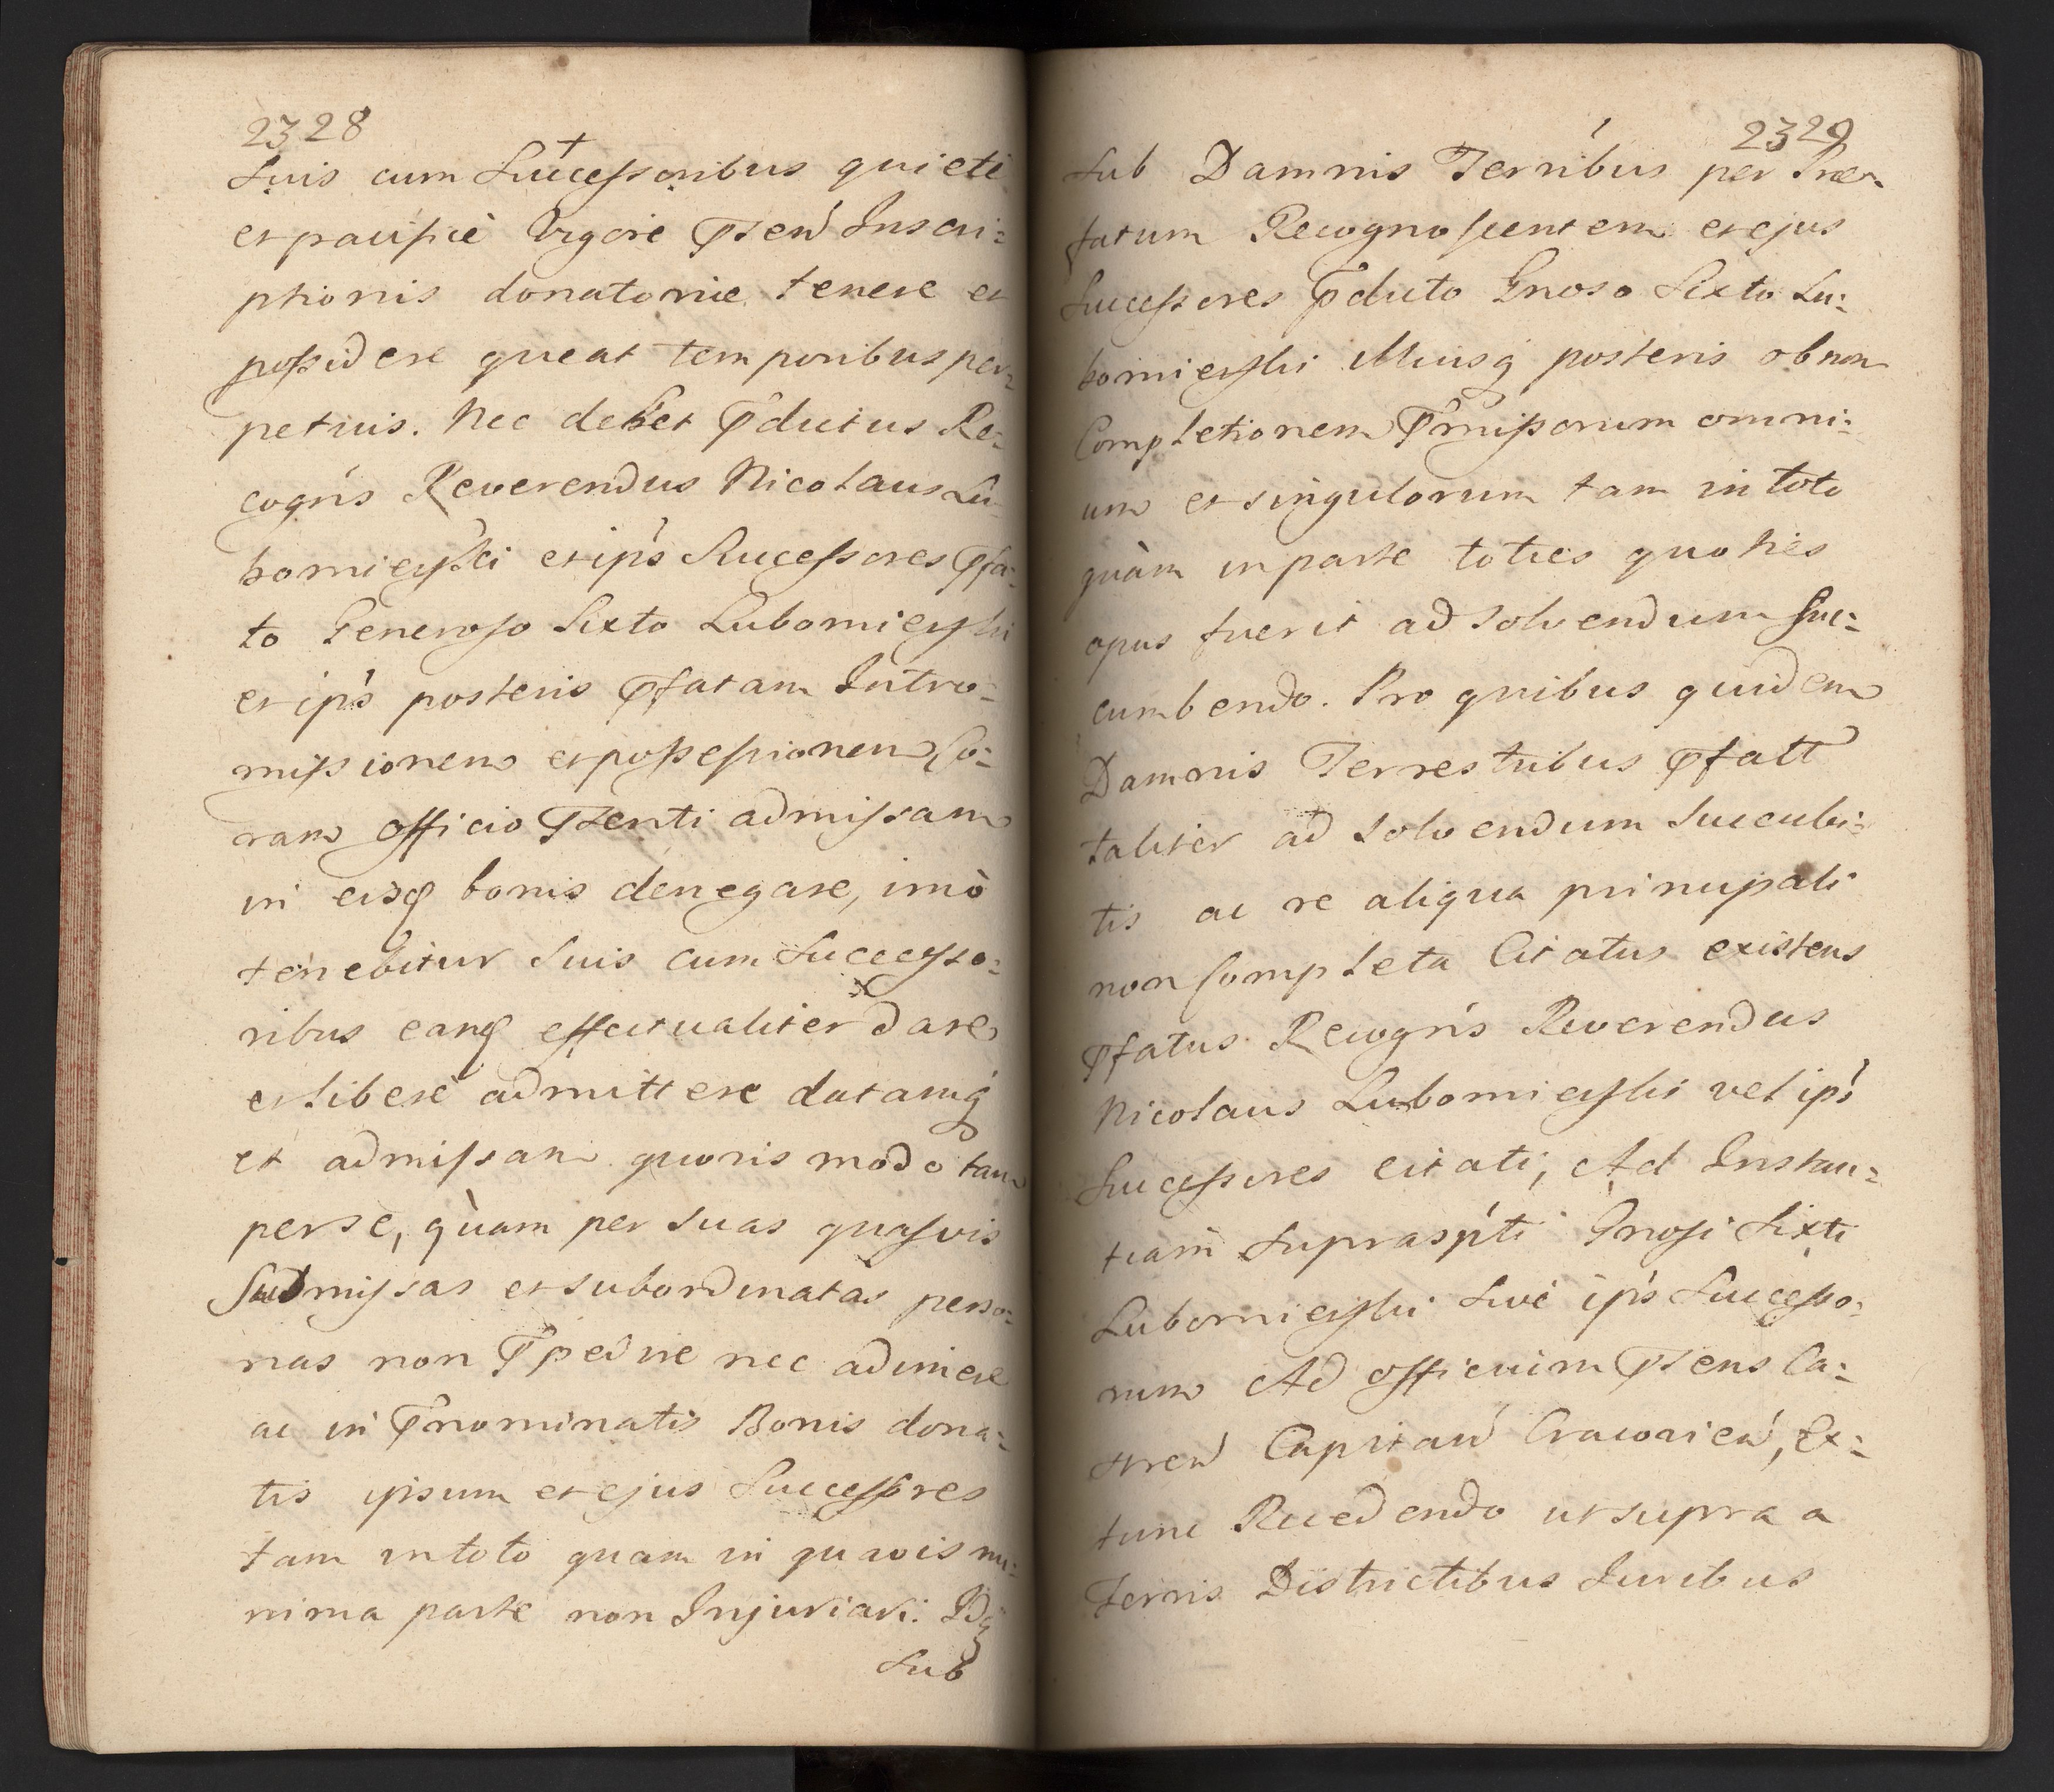 2328
Suis cum Successoribus quiete
et pacifice Vigore Pnsen Inscri=
ptionis donatoriae tenere et
possidere queat temporibus per=
petuis. Nec debet Pdictus Re=
cogn̄s Reverendus Nicolaus Lu=
bomierski et ip̄s Successores Pfa=
to Generoso Sixto Lubomierski
et ip̄s posteris Pfatam Intro=
missionem et possessionem Co=
ram officio Psenti admissam
in eisq bonis denegare, imò
tenebitur Suis cum Successo=
ribus eanq effectualiter dare
et liberè admittere datamq́
et admissam quovis modo tam
per se, quàm per suas quasvis
Submissas et subordinatas perso=
nas non Ppedire nec adimere
ac in Pnominatis Bonis dona=
tis ipsum et ejus Successores
tam in toto quam in quavis mi=
nima parte non Injuriari. Idq́
Sub
2329
Sub Damnis Terribus per Prae=
fatum Recognoscentem et ejus
Successores Pdicto Gnoso Sixto Lu=
bomierski illiusq́ posteris ob non
Completionem Pmissorum omni=
um et singulorum tam in toto
quàm in parte toties quoties
opus fuerit ad solvendum suc=
cumbendo. Pro quibus quidem
Damnis Terrestribus Pfatt
taliter ad solvendum succubi=
tis ac re aliqua principali
non Completa Citatus existens
Pfatus Recogn̄s Reverendus
Nicolaus Lubomierski vel ip̄s
Successores citati, Ad Instan=
tiam Suprasp̄ti Gnosi Sixti
Lubomierski Sive ip̄s Successo=
rum Ad officium Psens Ca=
stren Capitan Cracovien, Ex=
tunc Recedendo ut supra a
Terris Districtibus Juribus